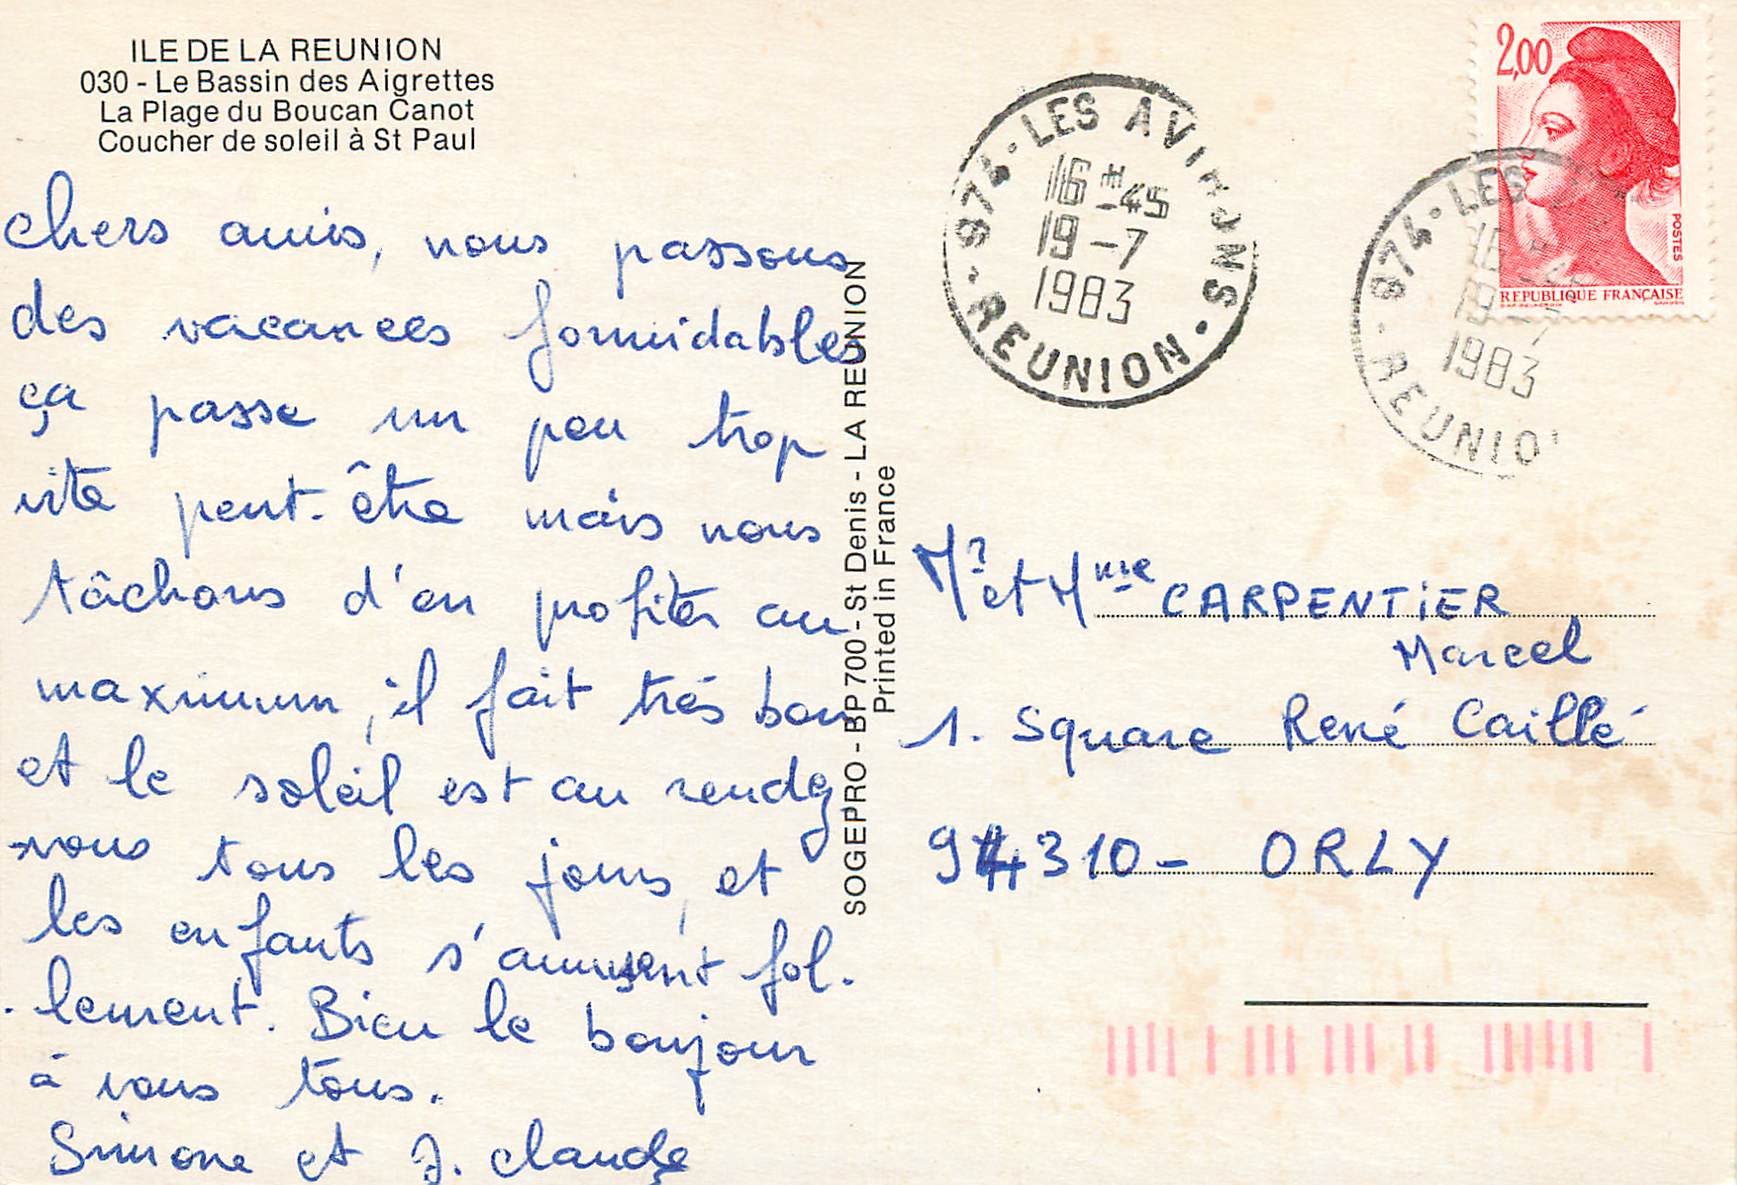 ILE DE LA REUNION
030 - Le Bassin des Aigrettes
La Plage du Boucan Canot
Coucher de soleil à St Paul
chers amis, nous passons
des vacances formidables
ça passe un peu trop
vite peut-être mais nous
tâchons d'en profiter au
maximum, il fait très bon
et le soleil est au rendez
-vous tous les jours, et
les enfants s'amusent fol-
lement. Bien le bonjour
à vous tous.
Simone et J. Claude
SOGEPRO - BP 700 - St Denis - LA REUNION
Printed in France
974 - LES AVIRONS
16 H -45
19 -7
1983
- REUNION -
2,00
POSTES
REPUBLIQUE FRANÇAISE
974 - LES
19 -7
1983
REUNIO
Mr et Mme CARPENTIER
Marcel
1. Square René Caillé
94310 - ORLY